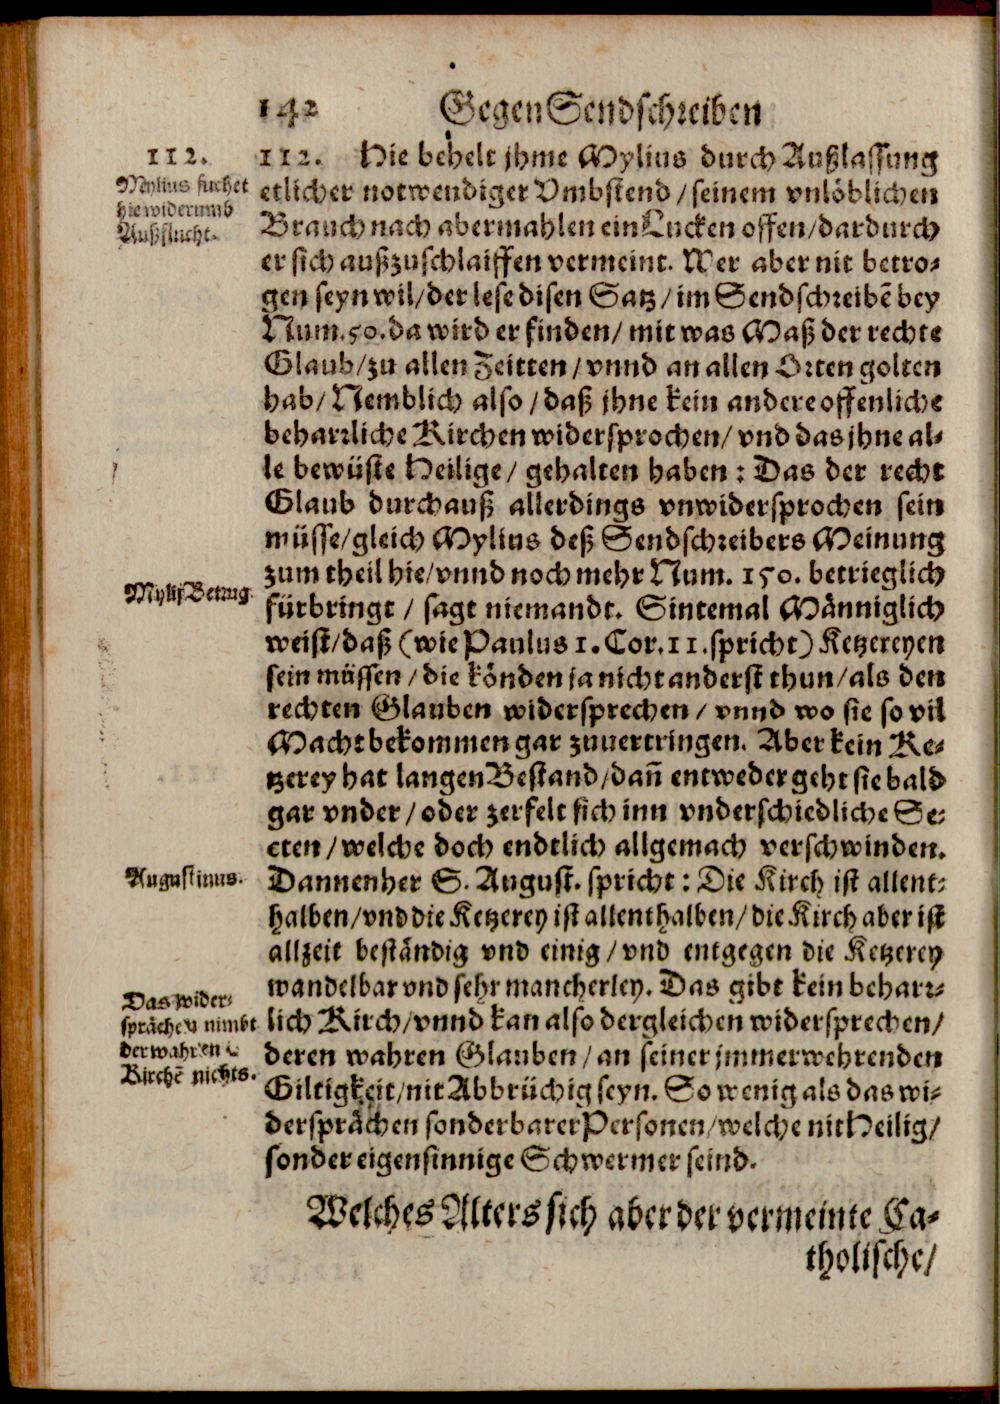 142 Gegen Sendschreiben
112.
Mylius suchet
hie widerumb
Außflucht.
112. Hie behelt jhme Mylius durch Außlassung
etlicher notwendiger Vmbstend / seinem vnlöblichen
Brauch nach abermahlen ein Lucken offen / dardurch
er sich außzuschlaiffen vermeint. Wer aber nit betro-
gen seyn wil / der lese disen Satz / im Sendschreibẽ bey
Num. 50. da wird er finden / mit was Maß der rechte
Glaub / zu allen Zeitten / vnnd an allen Orten golten
hab / Nemblich also / daß jhne kein andere offenliche
beharrliche Kirchen widersprochen / vnd das jhne al-
le bewüste Heilige / gehalten haben : Das der recht
Glaub durchauß allerdings vnwidersprochen sein
müsse / gleich Mylius deß Sendschreibers Meinung
zum theil hie / vnnd noch mehr Num. 150. betrieglich
Mylij Betrug.
fürbringt / sagt niemandt. Sintemal Männiglich
weist / daß (wie Paulus 1. Cor. 11. spricht) Ketzereyen
sein müssen / die könden ja nicht anderst thun / als den
rechten Glauben widersprechen / vnnd wo sie so vil
Macht bekommen gar zuuertringen. Aber kein Ke-
tzerey hat langen Bestand / dañ entweder geht sie bald
gar vnder / oder zerfelt sich inn vnderschiedliche Se-
cten / welche doch endtlich allgemach verschwinden.
Augustinus.
Dannenher S. August. spricht : Die Kirch ist allent-
halben / vnd die Ketzerey ist allenthalben / die Kirch aber ist
allzeit beständig vnd einig / vnd entgegen die Ketzerey
wandelbar vnd sehr mancherley. Das gibt kein beharr-
Das wider-
sprächen nimbt
der wahren
Kirchẽ nichts.
lich Kirch / vnnd kan also dergleichen widersprechen /
deren wahren Glauben / an seiner jmmerwehrenden
Giltigkeit / nit Abbrüchig seyn. So wenig als das wi-
dersprächen sonderbarer Personen / welche nit Heilig /
sonder eigensinnige Schwermer seind.
Welches Alters sich aber der vermeinte Ca-
tholische /